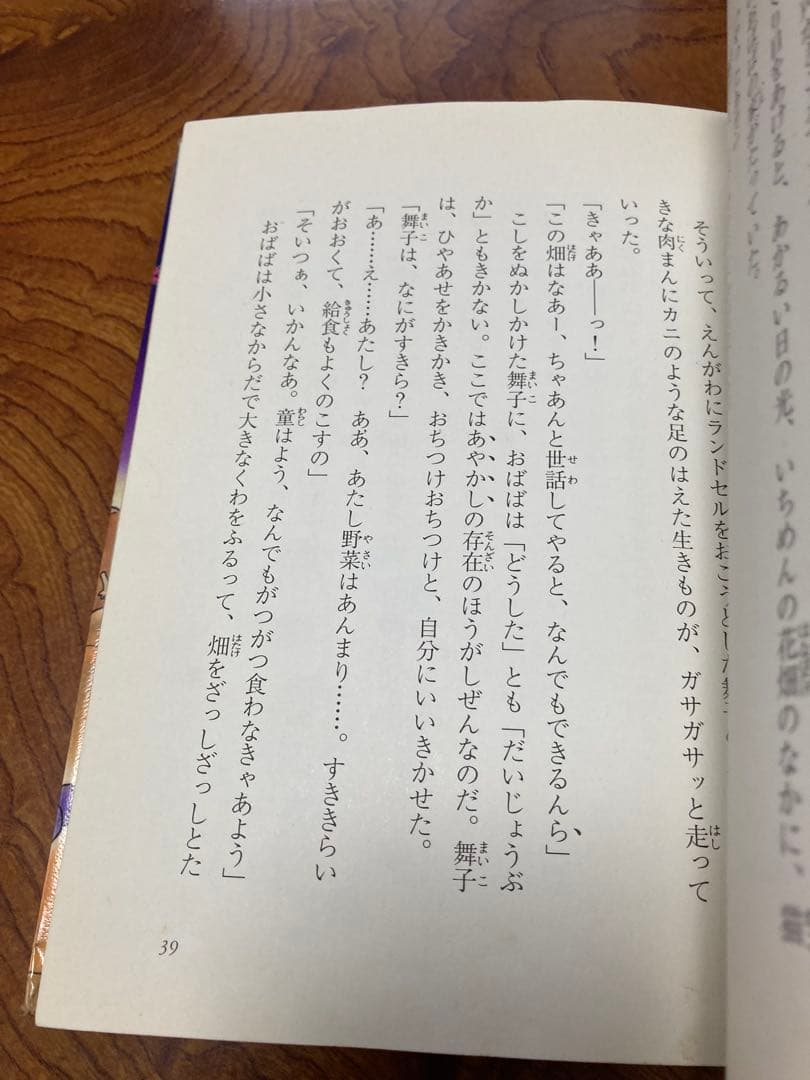 そういって、えんがわにランドセルをおこうとした舞子の
きな肉まんにカニのような足のはえた生きものが、ガサガサッと走って
いった。
「きゃああ――っ!」
「この畑はなあー、ちゃあんと世話してやると、なんでもできるんら」
こしをぬかしかけた舞子に、おばばは「どうした」とも「だいじょうぶ
か」ともきかない。ここではあやかしの存在のほうがしぜんなのだ。舞子
は、ひやあせをかきかき、おちつけおちつけと、自分にいいきかせた。
「舞子は、なにがすきら?」
「あ………え……あたし? ああ、あたし野菜はあんまり……。すききらい
がおおくて、給食もよくのこすの」
「そいつぁ、いかんなあ。童はよう、なんでもがつがつ食わなきゃあよう」
おばばは小さなからだで大きなくわをふるって、畑をざっしざっしとた
39
わかるい日の光、いちめんの花畑のなかに、